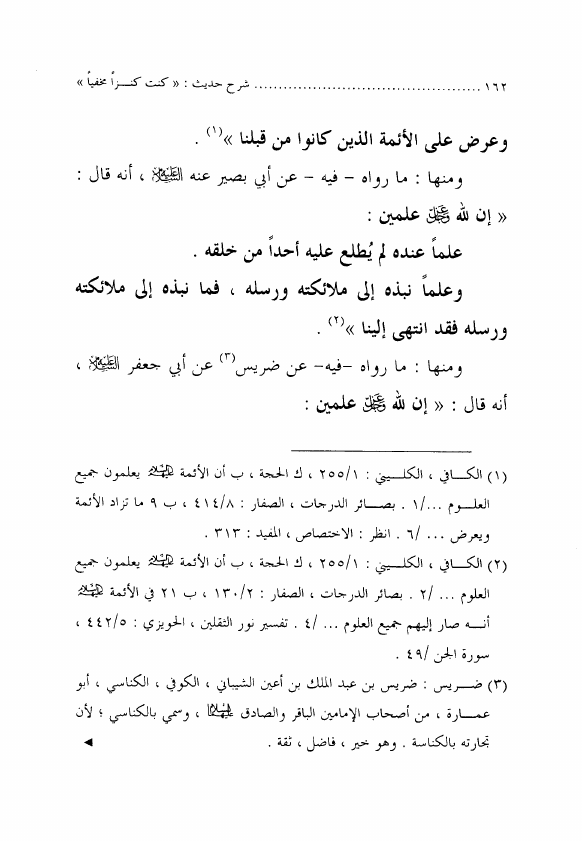 ١٦٢ .............................................. شرح حديث : « كنت كنـزاً مخفياً »
وعرض على الأئمة الذين كانوا من قبلنا »(١) .
ومنها : ما رواه – فيه – عن أبي بصير عنه عليه السلام ، أنه قال :
« إن لله عز وجل علمين :
علماً عنده لم يُطلع عليه أحداً من خلقه .
وعلماً نبذه إلى ملائكته ورسله ، فما نبذه إلى ملائكته
ورسله فقد انتهى إلينا »(٢) .
ومنها : ما رواه –فيه– عن ضريس(٣) عن أبي جعفر عليه السلام ،
أنه قال : « إن لله عز وجل علمين :
(١) الكـافي ، الكلـيني : ٢٥٥/١ ، ك الحجة ، ب أن الأئمة عليهم السلام يعلمون جميع
العلـوم .../١ . بصـائر الدرجات ، الصفار : ٤١٤/٨ ، ب ٩ ما تزاد الأئمة
ويعرض ... /٦ . انظر : الاختصاص ، المفيد : ٣١٣ .
(٢) الكـافي ، الكلـيني : ٢٥٥/١ ، ك الحجة ، ب أن الأئمة عليهم السلام يعلمون جميع
العلوم ... /٢ . بصائر الدرجات ، الصفار : ١٣٠/٢ ، ب ٢١ في الأئمة عليهم السلام
أنـه صار إليهم جميع العلوم ... /٤ . تفسير نور الثقلين ، الحويزي : ٤٤٢/٥ ،
سورة الجن /٤٩ .
(٣) ضـريس : ضريس بن عبد الملك بن أعين الشيباني ، الكوفي ، الكناسي ، أبو
عمـارة ، من أصحاب الإمامين الباقر والصادق عليهما السلام ، وسمي بالكناسي ؛ لأن
تجارته بالكناسة . وهو خير ، فاضل ، ثقة . ◄